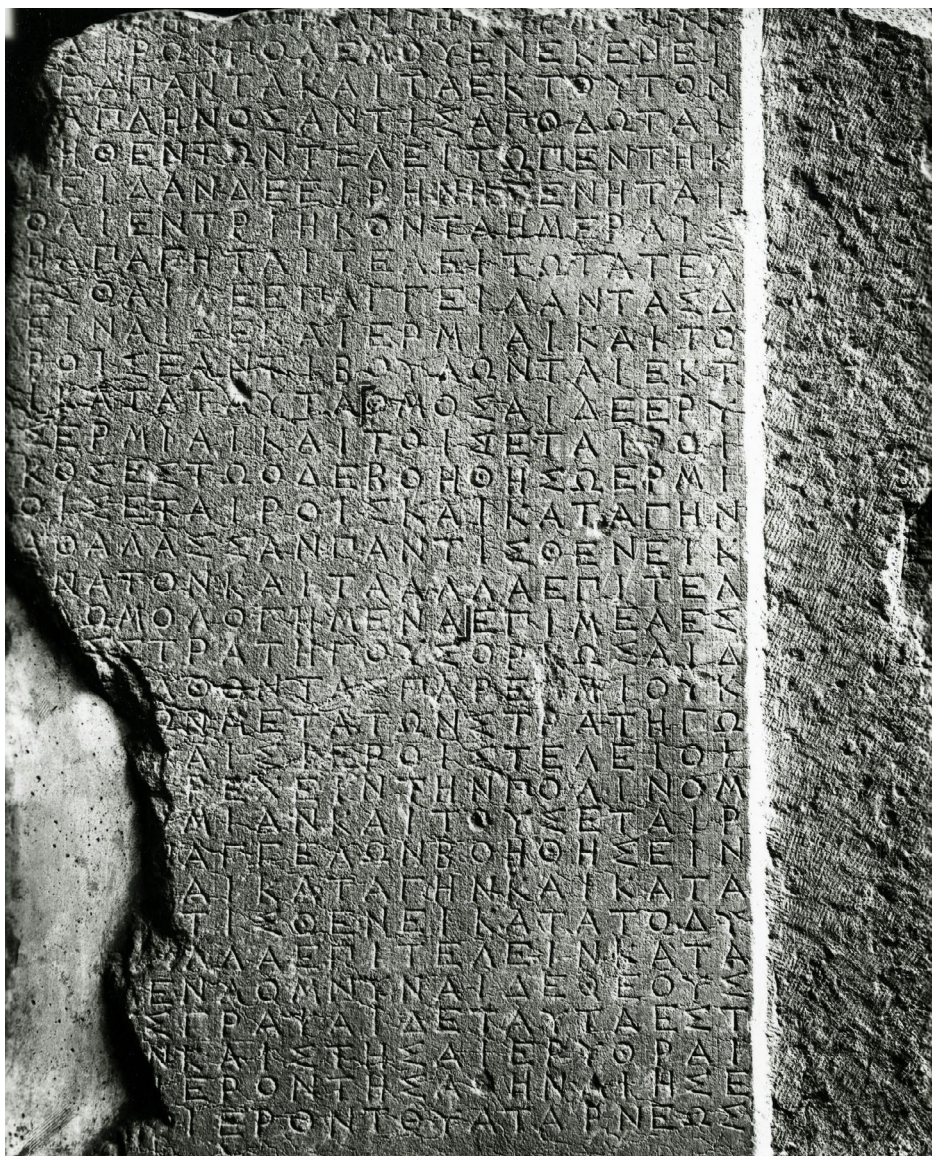 ΗΑΝΤΗ
ΑΙΡΩΝΠΟΛΕΜΟΥΕΝΕΚΕΝΕΙ
ΑΠΑΝΤΑΚΑΙΤΑΕΚΤΟΥΤΩΝ
ΑΠΛΗΝΟΣΑΝΤΙΣΑΠΟΔΩΤΑΚ
ΗΘΕΝΤΩΝΤΕΛΕΙΤΩΠΕΝΤΗΚ
ΠΕΙΔΑΝΔΕΕΙΡΗΝΗΓΕΝΗΤΑΙ
ΘΑΙΕΝΤΡΙΗΚΟΝΤΑΗΜΕΡΑΙΣ
ΗΑΠΑΓΗΤΑΙΤΕΛΕΙΤΩΤΑΤΕΛ
ΕΣΘΑΙΔΕΕΠΑΓΓΕΙΛΑΝΤΑΣΔ
ΕΙΝΑΙΔΕΚΑΙΕΡΜΙΑΙΚΑΙΤΟ
ΡΟΙΣΕΑΝΤΙΒΟΥΛΩΝΤΑΙΕΚΤ
ΙΚΑΤΑΤΑΥΤΑΟΜΟΣΑΙΔΕΕΡΥ
ΣΕΡΜΙΑΙΚΑΙΤΟΙΣΕΤΑΙΡΟΙ
ΚΟΣΕΣΤΩΟΔΕΒΟΗΘΗΣΩΕΡΜΙ
ΟΙΣΕΤΑΙΡΟΙΣΚΑΙΚΑΤΑΓΗΝ
ΑΘΑΛΑΣΣΑΝΠΑΝΤΙΣΘΕΝΕΙΚ
ΝΑΤΟΝΚΑΙΤΑΑΛΛΑΕΠΙΤΕΛ
ΟΜΟΛΟΓΗΜΕΝΑΕΠΙΜΕΛΕΣ
ΣΤΡΑΤΗΓΟΥΣΟΡΚΩΣΑΙΔ
ΛΘΟΝΤΑΣΠΑΡΕΡΜΙΟΥΚ
ΩΝΜΕΤΑΤΩΝΣΤΡΑΤΗΓΩ
ΑΙΣΙΕΡΟΙΣΤΕΛΕΙΟΙ
ΡΕΧΕΙΝΤΗΝΠΟΛΙΝΟΜ
ΜΙΑΝΚΑΙΤΟΥΣΕΤΑΙΡ
ΑΓΓΕΛΩΝΒΟΗΘΗΣΕΙΝ
ΑΙΚΑΤΑΓΗΝΚΑΙΚΑΤΑ
ΤΙΣΘΕΝΕΙΚΑΤΑΤΟΔΥ
ΛΛΑΕΠΙΤΕΛΕΙΝΚΑΤΑ
ΕΝΑΟΜΝΥΝΑΙΔΕΘΕΟΥΣ
ΓΡΑΨΑΙΔΕΤΑΥΤΑΕΣΤ
ΝΚΑΙΣΤΗΣΑΙΕΡΥΘΡΑΙ
ΙΕΡΟΝΤΗΣΑΘΗΝΑΙΗΣΕ
ΙΕΡΟΝΤΟΥΑΤΑΡΝΕΩΣ